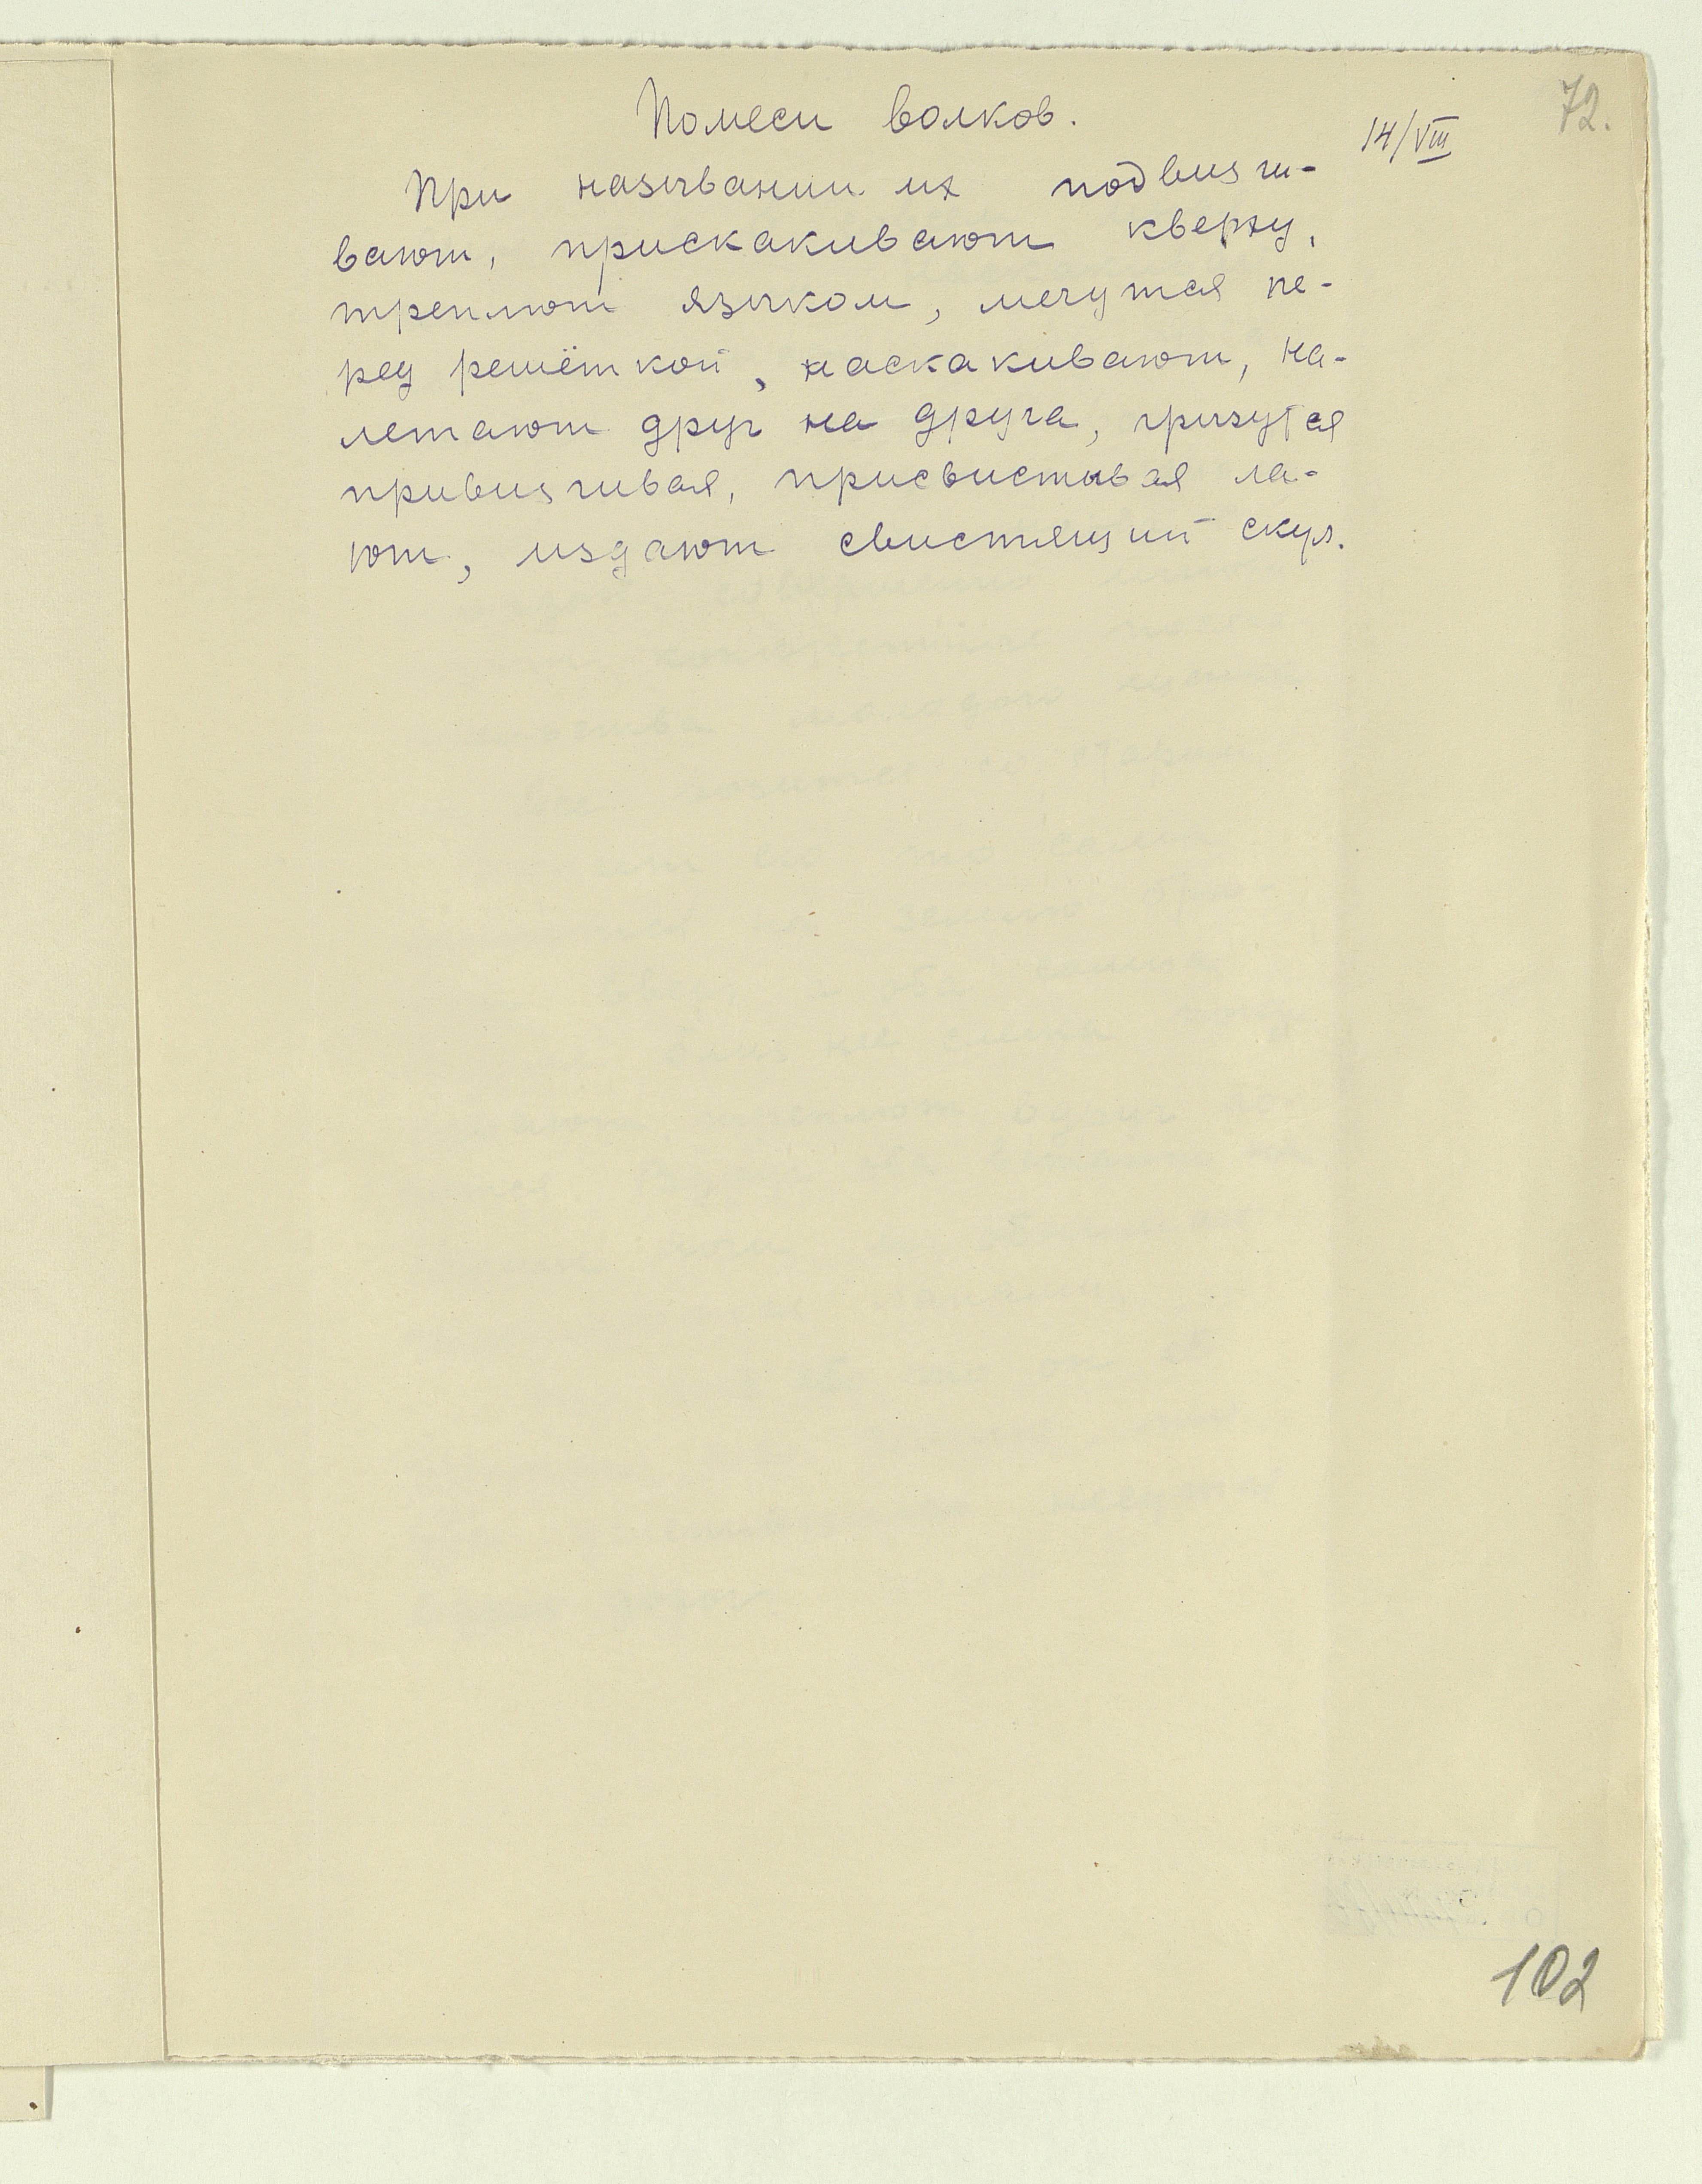 72.
Помеси волков.
14/VIII
При назывании их подвизги-
вают, прискакивают кверху,
треплют язычком, мечутся пе-
ред решёткой, наскакивают, на-
летают друг на друга, грызутся
привизгивая, присвистывая ла-
ют, издают свистящий скул.
102